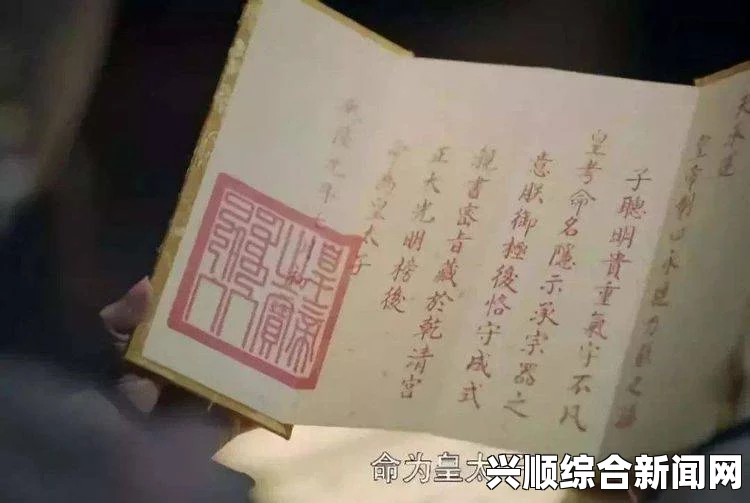 天承運
皇帝制曰永璉乃朕之
子聰明貴重氣宇不凡
皇考命名隱示承宗器之
意朕御極後恪守成式
親書密旨藏於乾清宮
正大光明榜後
命為皇太子
乾隆元年七
皇帝之寶
命为皇太
兴顺综合新闻网